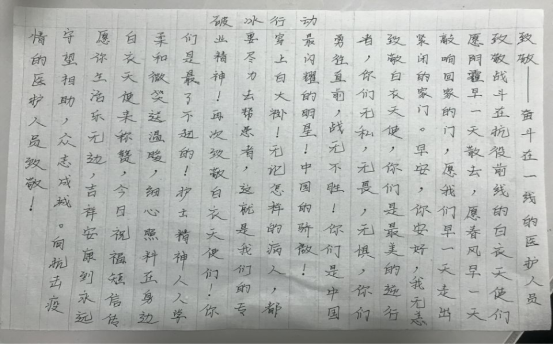 破冰行动
致敬——奋斗在一线的医护人员
致敬战斗在抗疫前线的白衣天使们
愿阴霾早一天散去，愿春风早一天
敲响回家的门，愿我们早一天走出
紧闭的家门。早安，你安好，我无恙
致敬白衣天使，你们是最美的逆行
者，你们无私，无畏，无惧，你们
勇往直前，战无不胜！你们是中国
最闪耀的明星！中国的骄傲！
穿上白大卦！无论怎样的病人，都
要尽力去帮患者，这就是我们的专
业精神！再次致敬白衣天使们！你
们是最了不起的！护士精神人人学
柔和微笑送温暖，细心照料在身边
白衣天使来称赞，今日祝福短信传
愿你生活乐无边，吉祥安康到永远
守望相助，众志成城。向抗击疫
情的医护人员致敬！